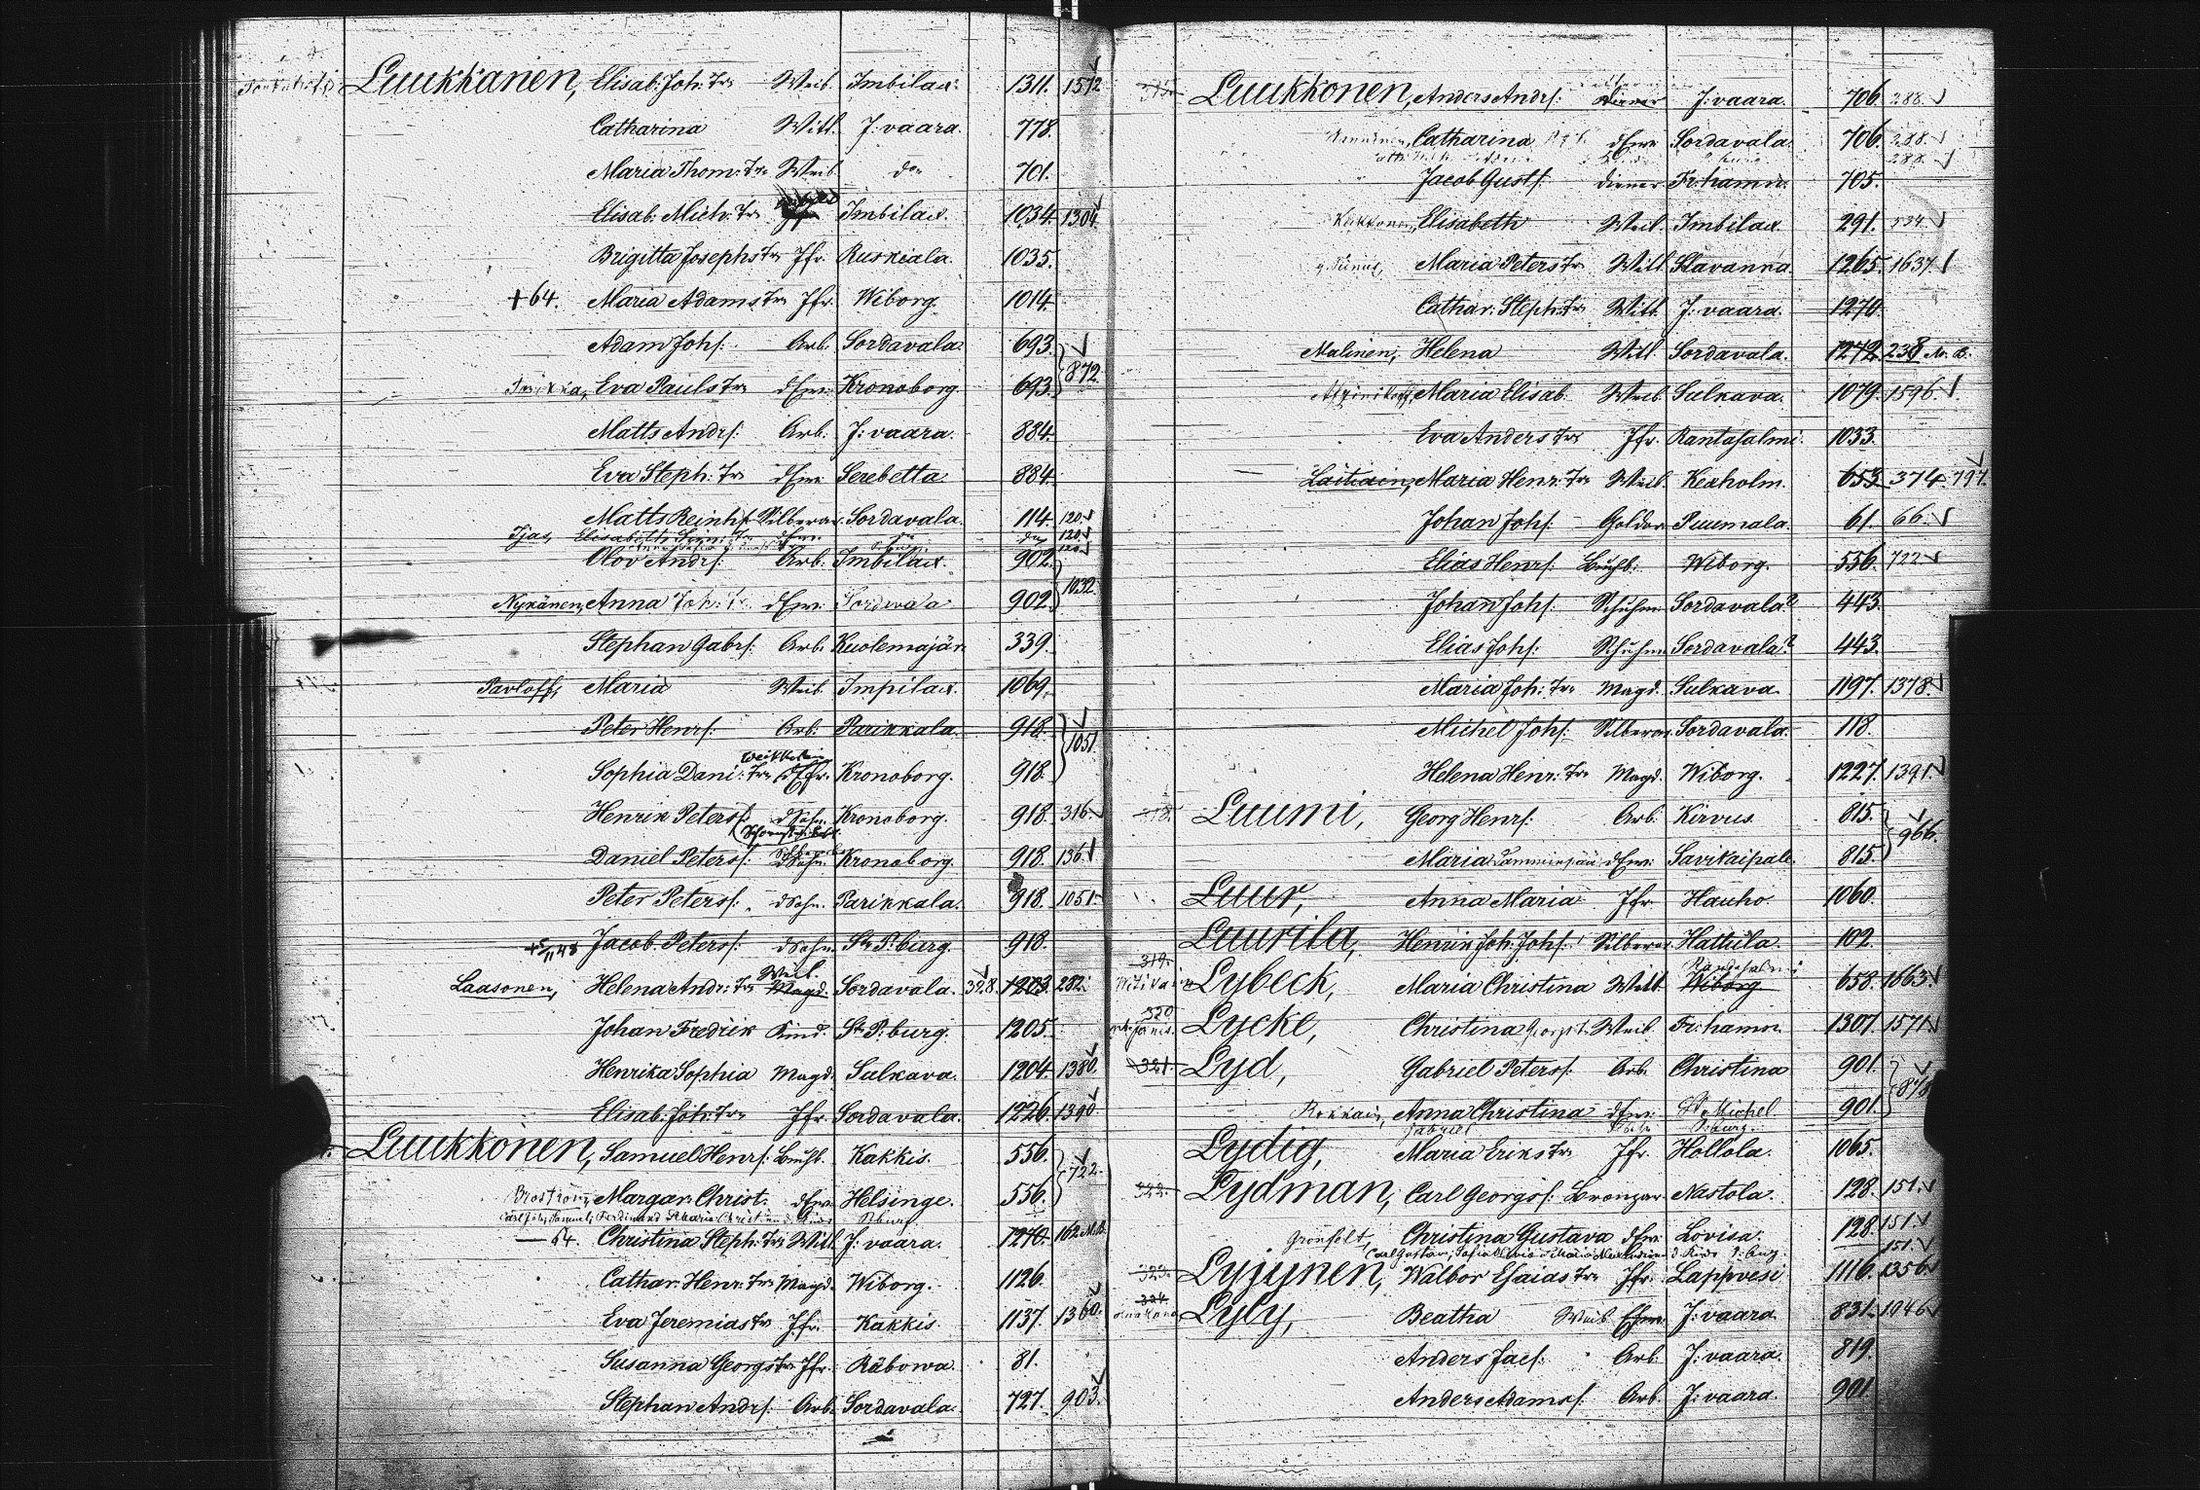 Luukkanen, Elisab: Joh: Tr: Weib. Imbilax. 1311. 1572
Catharina Witt. J:vaara. 778.
Maria Thom: Tr: Weib do 701.
Elisab: Mich: Tr: Imbilax. 1034. 1304.
Brigitta Josephs Tr: Jfr. Ruskiala. 1035.
+64. Maria Adams Tr: Jfr. Wiborg. 1014.
Adam Johs: Arb. Sordavala. 693. 872.
Eva Pauls Tr: dEw: Kronoborg. 693.
Matts Andrs: Arb: J:vaara. 884.
Eva Steph: Tr: dEw: Serebetta 884.
Matts Reinhs: Silberar. Sordavala. 114. 120.
Tjas, Elisabeth 120.
Olov Andrs: Arb: Imbilax. 902. 1032.
Nykänen, Anna Joh: Tr: dEw: Sordavala 902.
Stephan Gabrs: Arb. Kuolemajär. 339.
Pavloff, Maria Weib Impilax. 1069.
Peter Henrs: Arb: Parikkala. 918. 1051.
Sophia Dani: Tr: dEfr. Kronoborg. 918.
Henrik Peterss: dSohn. Kronoborg. 918. 316.
Daniel Peterss: dSohn. Kronoborg. 918. 136.
Peter Peterss: dSohn. Parikkala. 918. 1051.
Jacob Peterss: dSohn. St. P:burg. 918.
Laasonen, Helena Andr: Tr: Weib. Magd. Sordavala. 328. 1203. 282.
Johan Fredrik Kind. St. P:burg. 1205.
Henrika Sophia Magd. Sulkava. 1204. 1380.
Elisab: Joh: Tr: Jfr. Sordavala. 1226. 1390.
Luukkonen, Samuel Henrs: Buchb. Kakkis. 556. 722.
Broström, Margar: Christ. dEw: Helsinge. 556.
64. Christina Steph: Tr: Witt. J:vaara. 1270. 162
Cathar: Henr: Tr: Magd. Wiborg. 1126.
Eva Jeremias Tr: Jfr. Kakkis. 1137. 1360.
Susanna Georgs Tr: Jfr. Räbowa. 81.
Stephan Andrs: Arb. Sordavala. 727. 903.
Luukkonen, Anders Andrs: Diener J:vaara. 706. 288.
Catharina dEwe Sordavala. 706. 288.
288.
Jacob Gusts: diener Fr:hamn. 705.
Elisabeth Weib. Imbilax. 291. 534.
Maria Peters Tr: Witt. Slavanka. 1265. 1637.
Cathar: Steph: Tr: Witt. J:vaara. 1270.
Malinen, Helena Witt. Sordavala. 1272. 238
Maria Elisab. Weib Sulkava. 1079. 1596.
Eva Anders Tr: Jfr. Rantasalmi. 1033.
Laitiain, Maria Henr: Tr: Weib. Kexholm. 653. 374. 797.
Johan Johs: Goldar. Puumala. 61. 66.
Elias Henrs: Buchb: Wiborg. 556. 722.
Johan Johs: Schuhm. Sordavala? 443.
Elias Johs: Schuhm. Sordavala? 443.
Maria Joh: Tr: Magd. Sulkava. 1197. 1378.
Michel Johs: Silberar. Sordavala. 118.
Helena Henr: Tr: Magd. Wiborg. 1227. 1391.
Luumi, Georg Henrs: Arb. Kirvus. 815. 966.
Maria dEw: Savitaipale. 815.
Luur, Anna Maria Jfr. Hauho. 1060.
Luurila, Henrik Joh: Johs: Silberar. Hattula. 102.
319. Lybeck, Maria Christina Witt. Wiborg 658. 1663.
320 Lycke, Christina Weib. Fr:hamn. 1307. 1571.
321. Lyd, Gabriel Peterss: Arb. Christina 901. 878
Anna Christina dEw: St. Michel 901.
Lydig, Maria Eriks Tr: Jfr. Hollola. 1065.
322. Lydman, Carl Georgss: Bronzar. Nastola. 128. 151.
Grönfelt, Christina Gustava dEw: Lovisa. 128. 151.
151.
323. Lyjynen, Walbor Esaias Tr: Jfr. Lappvesi 1116. 1356.
324. Lyly, Beatha Weib Ehew. J:vaara. 831. 1046
Anders Jacs: Arb. J:vaara. 819.
Anders Adamss: Arb. J:vaara. 901.